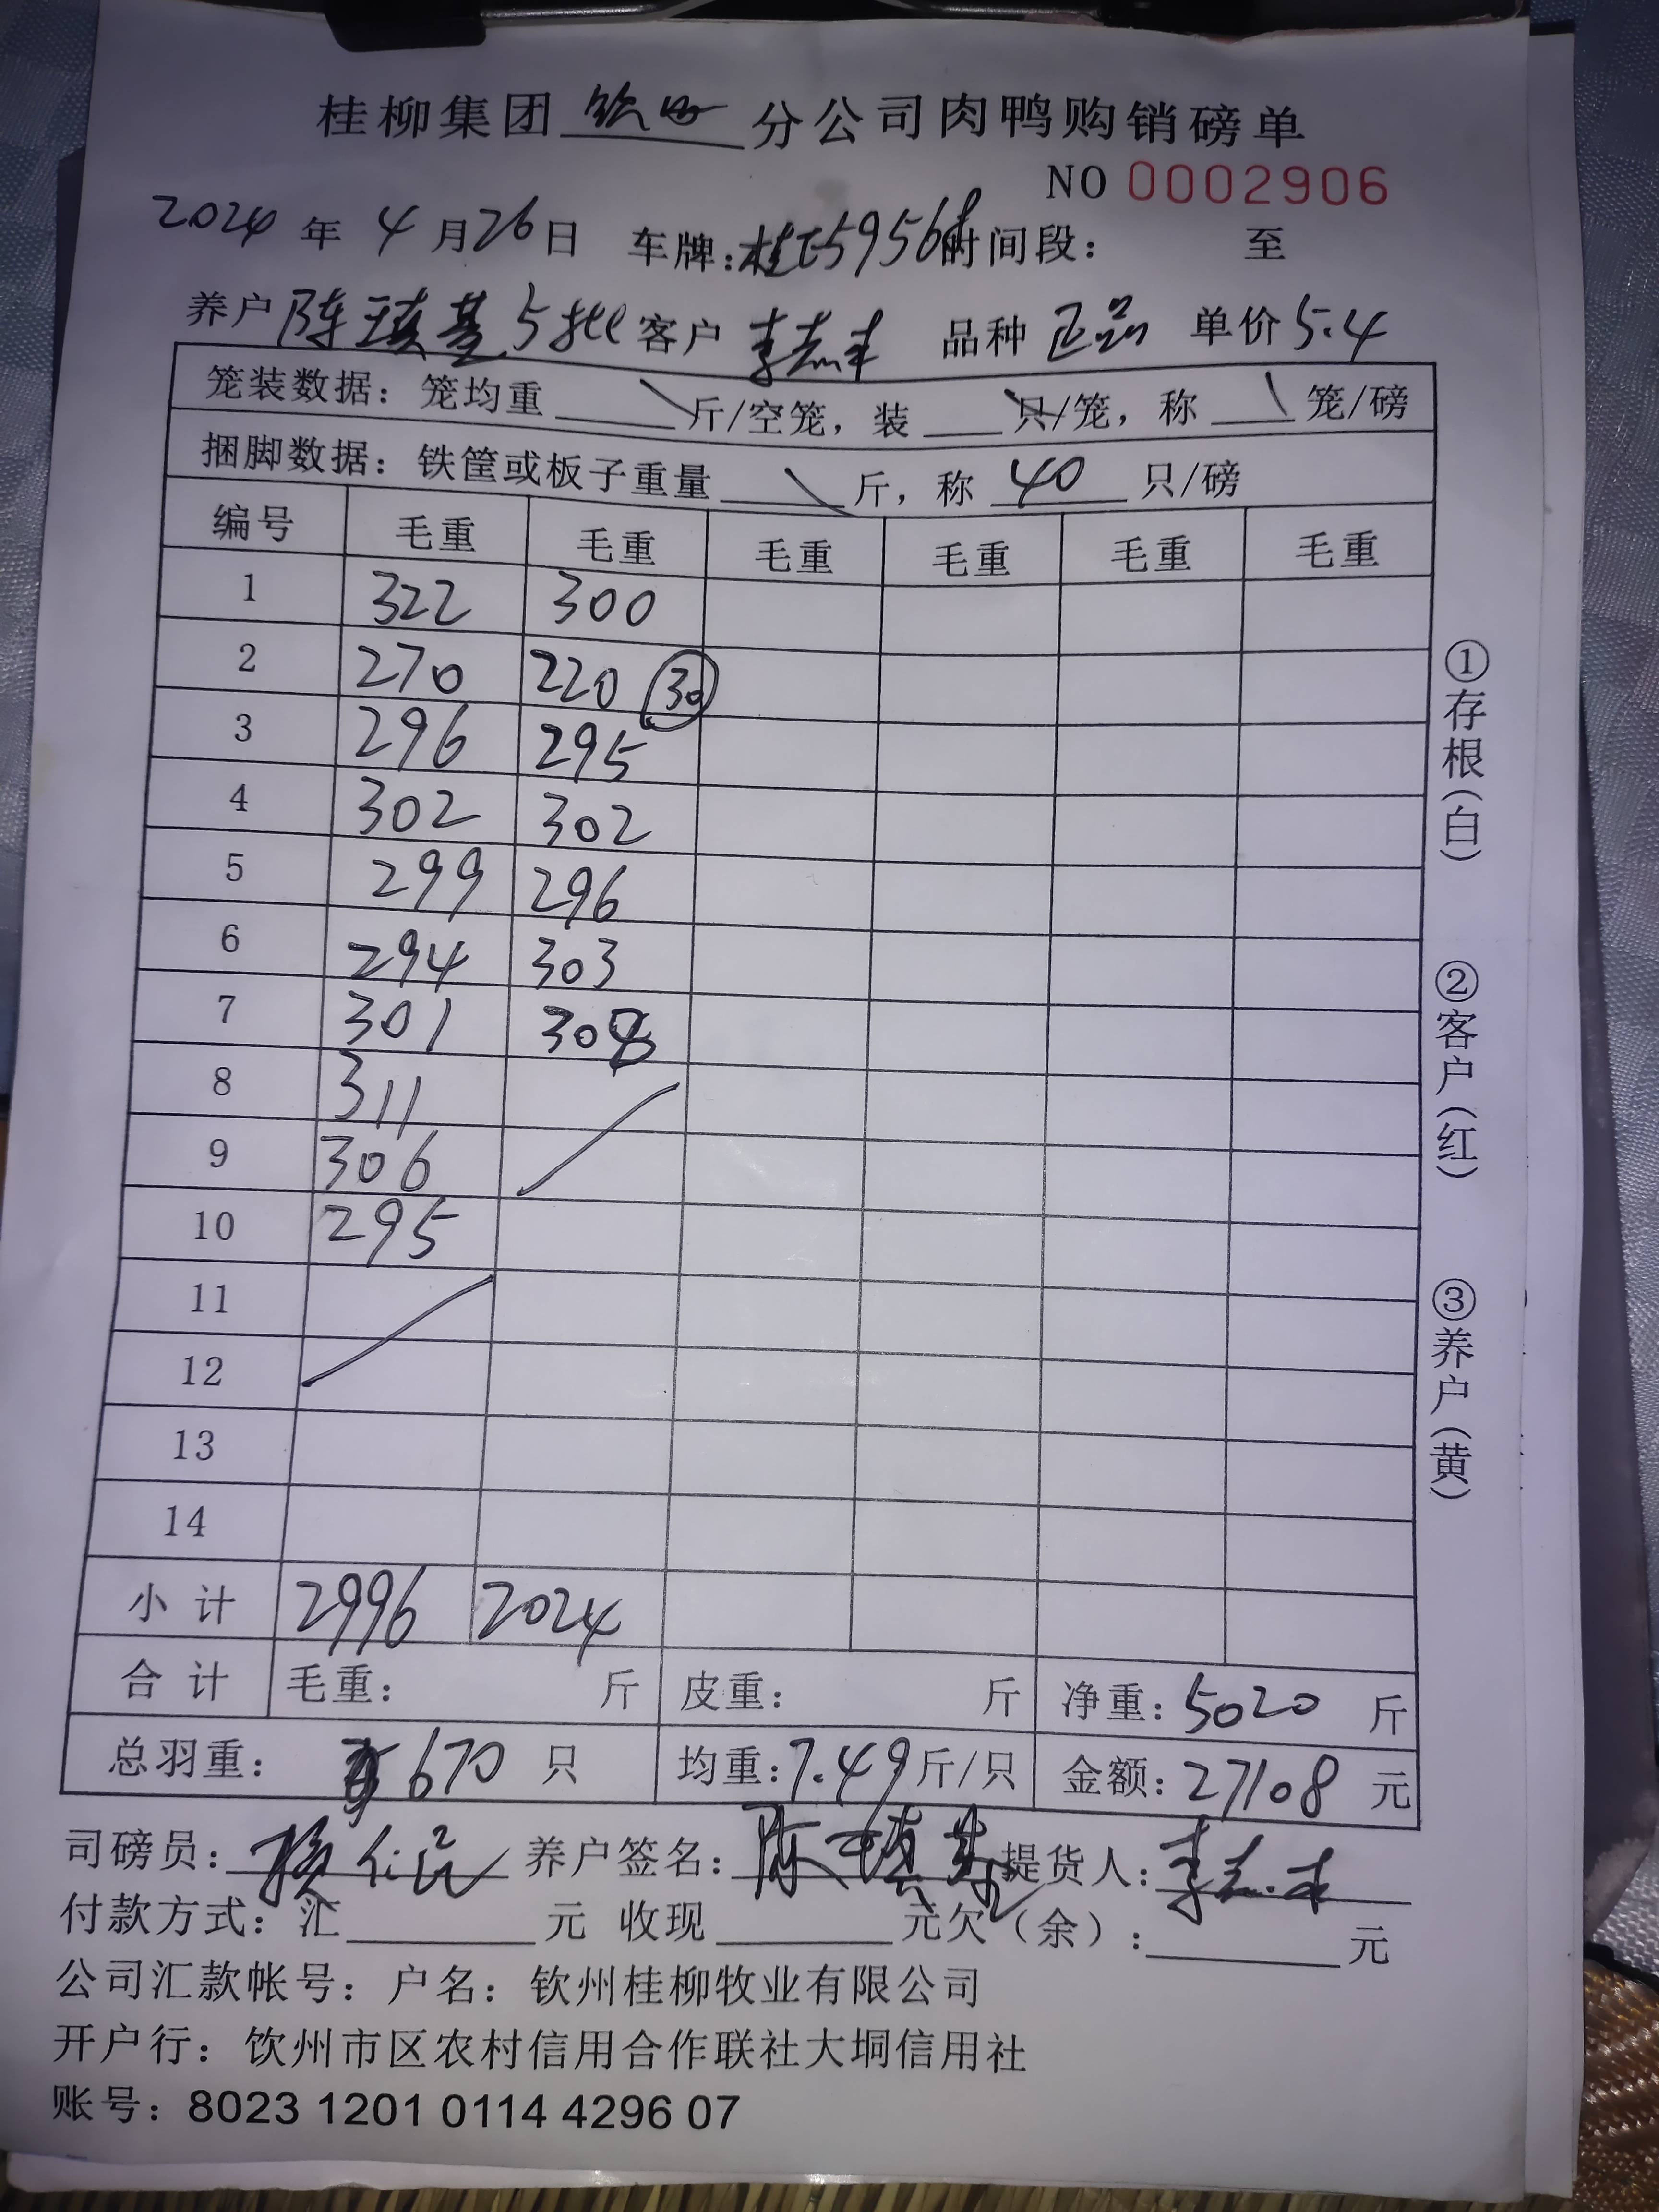 桂柳集团 钦州 分公司肉鸭购销磅单
NO 0002906
2024 年 4 月 26 日 车牌: 桂 5956 时间段: 至
养户 陈瑱基 5批 客户 李志丰 品种 正品 单价 5.4
笼装数据: 笼均重 \ 斤/空笼, 装 \ 只/笼, 称 \ 笼/磅
捆脚数据: 铁筐或板子重量 \ 斤, 称 40 只/磅
编号 毛重 毛重 毛重 毛重 毛重 毛重
1 322 300
2 270 220 30
3 296 295
4 302 302
5 299 296
6 294 303
7 301 308
8 311
9 306
10 295
11
12
13
14
小计 2996 2024
合计 毛重: 斤 皮重: 斤 净重: 5020 斤
总羽重: 670 只 均重: 7.49 斤/只 金额: 27108 元
司磅员: 养户签名: 陈瑱基 提货人: 李志丰
付款方式: 汇 元 收现 元欠(余): 元
公司汇款帐号: 户名: 钦州桂柳牧业有限公司
开户行: 钦州市区农村信用合作联社大垌信用社
账号: 8023 1201 0114 4296 07
①存根(白)
②客户(红)
③养户(黄)